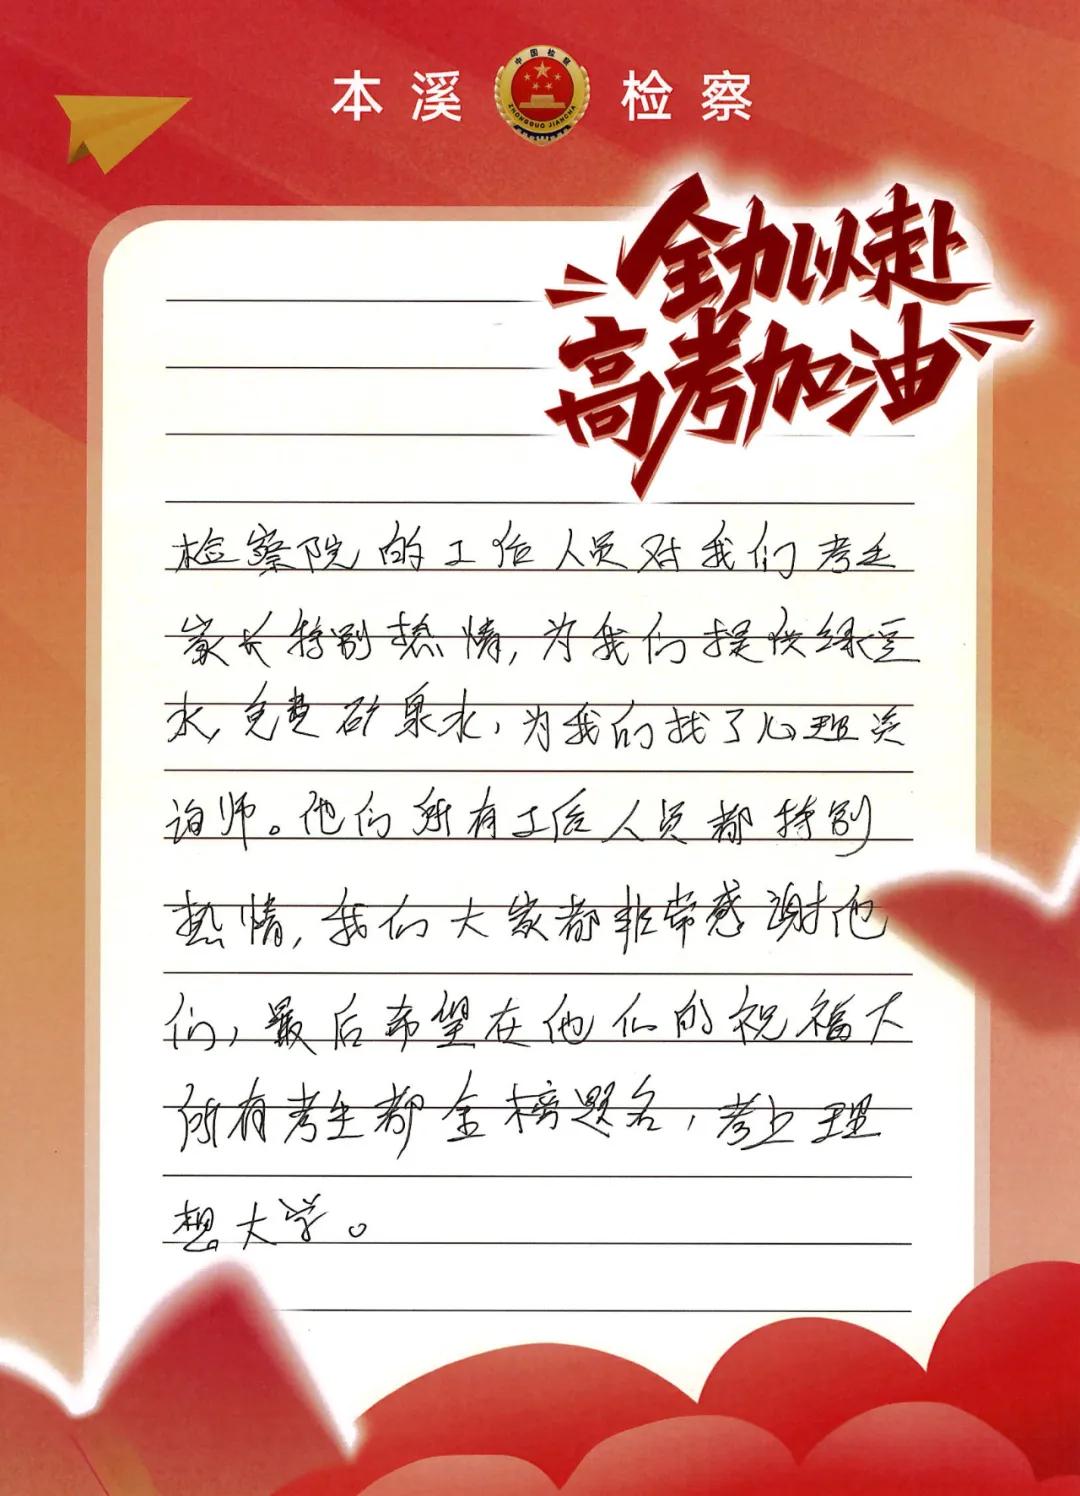 本溪 检察
中国检察
ZHONGGUO JIANCHA
全力以赴
高考加油
检察院的工作人员对我们考生
家长特别热情,为我们提供绿豆
水,免费矿泉水,为我们找了心理咨
询师。他们所有工作人员都特别
热情,我们大家都非常感谢他
们,最后希望在他们的祝福下
所有考生都金榜题名,考上理
想大学。